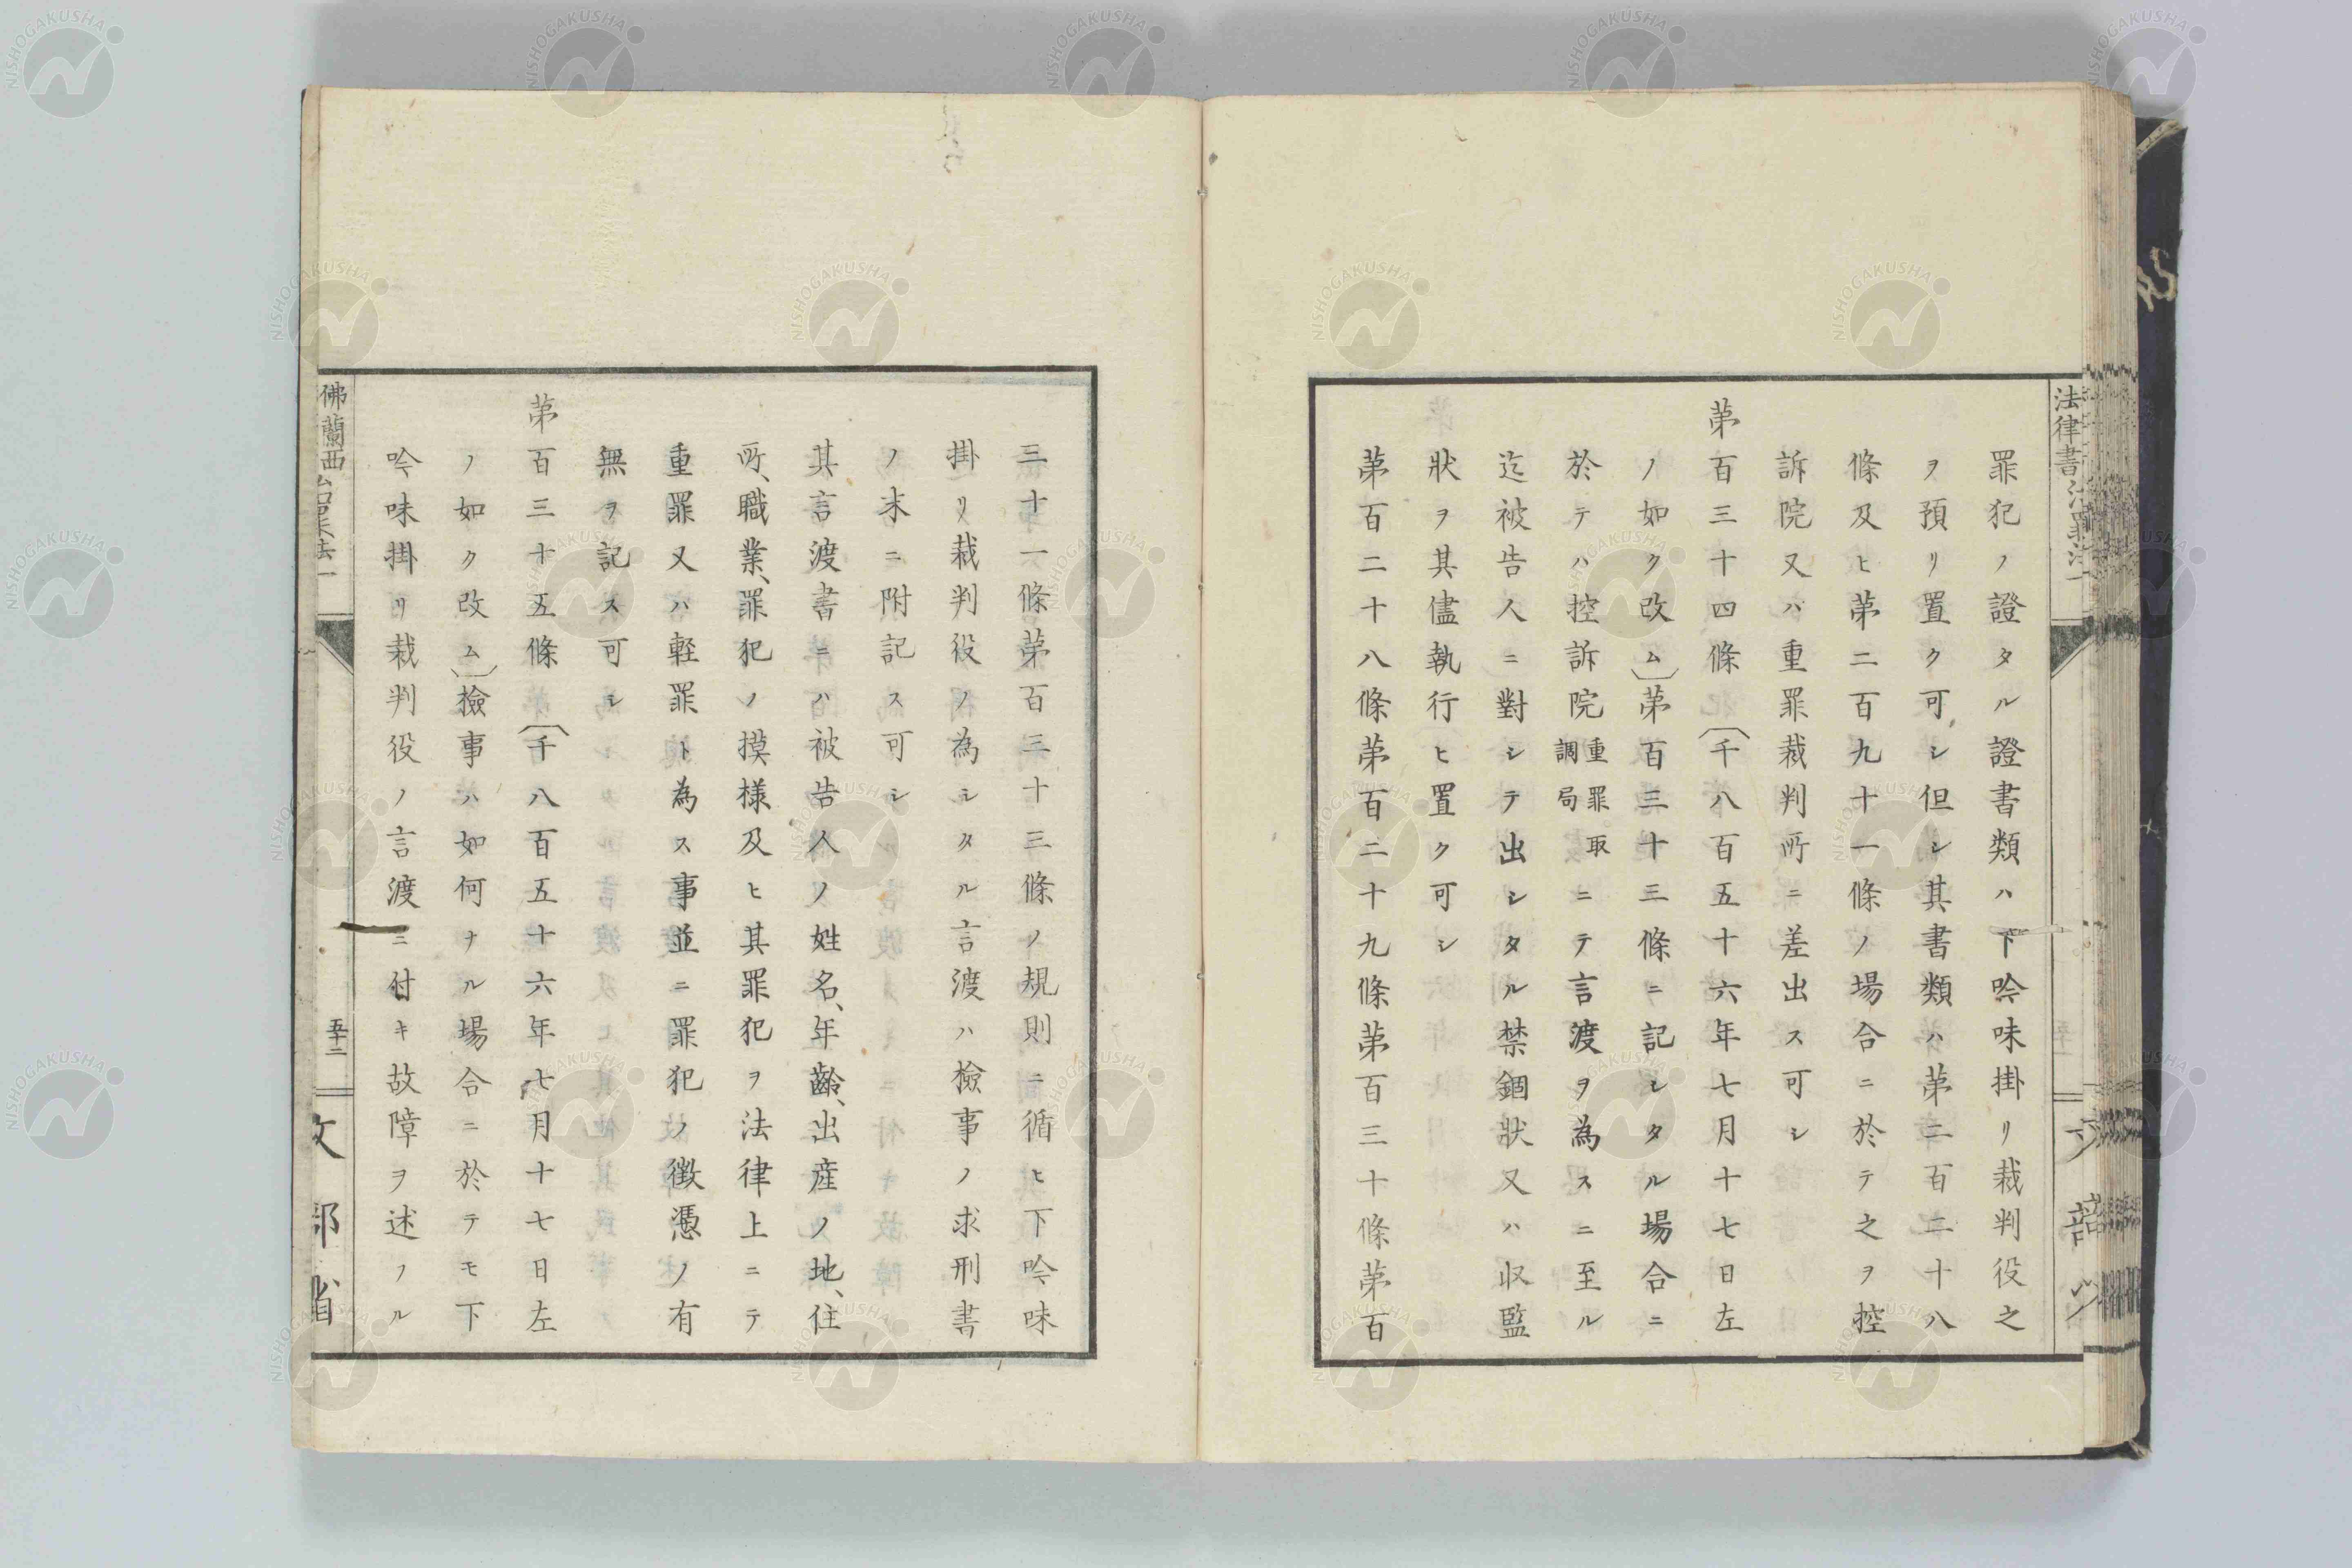 罪犯ノ證タル證書類ハ下吟味掛リ裁判役之
ヲ預リ置ク可シ但シ其書類ハ第二百二十八
條及ヒ第二百九十一條ノ場合ニ於テ之ヲ控
訴院又ハ重罪裁判所ニ差出ス可シ
第百三十四條〔千八百五十六年七月十七日左
ノ如ク改ム〕第百三十三條ニ記シタル場合ニ
於テハ控訴院重罪取調局ニテ言渡ヲ為スニ至ル
迄被告人ニ對シテ出シタル禁錮狀又ハ収監
狀ヲ其儘執行ヒ置ク可シ
第百二十八條第百二十九條第百三十條第百
三十一條第百三十三條ノ規則ニ循ヒ下吟味
掛リ裁判役ノ為シタル言渡ハ檢事ノ求刑書
ノ末ニ附記ス可シ
其言渡書ニハ被告人ノ姓名、年齡、出産ノ地、住
所、職業、罪犯ノ摸様及ヒ其罪犯ヲ法律上ニテ
重罪又ハ軽罪ト為ス事並ニ罪犯ノ徴憑ノ有
無ヲ記ス可シ
第百三十五條〔千八百五十六年七月十七日左
ノ如ク改ム〕檢事ハ如何ナル場合ニ於テモ下
吟味掛リ裁判役ノ言渡ニ付キ故障ヲ述フル
佛蘭西
五十二
文部省
法律書
NISHOGAKUSHA